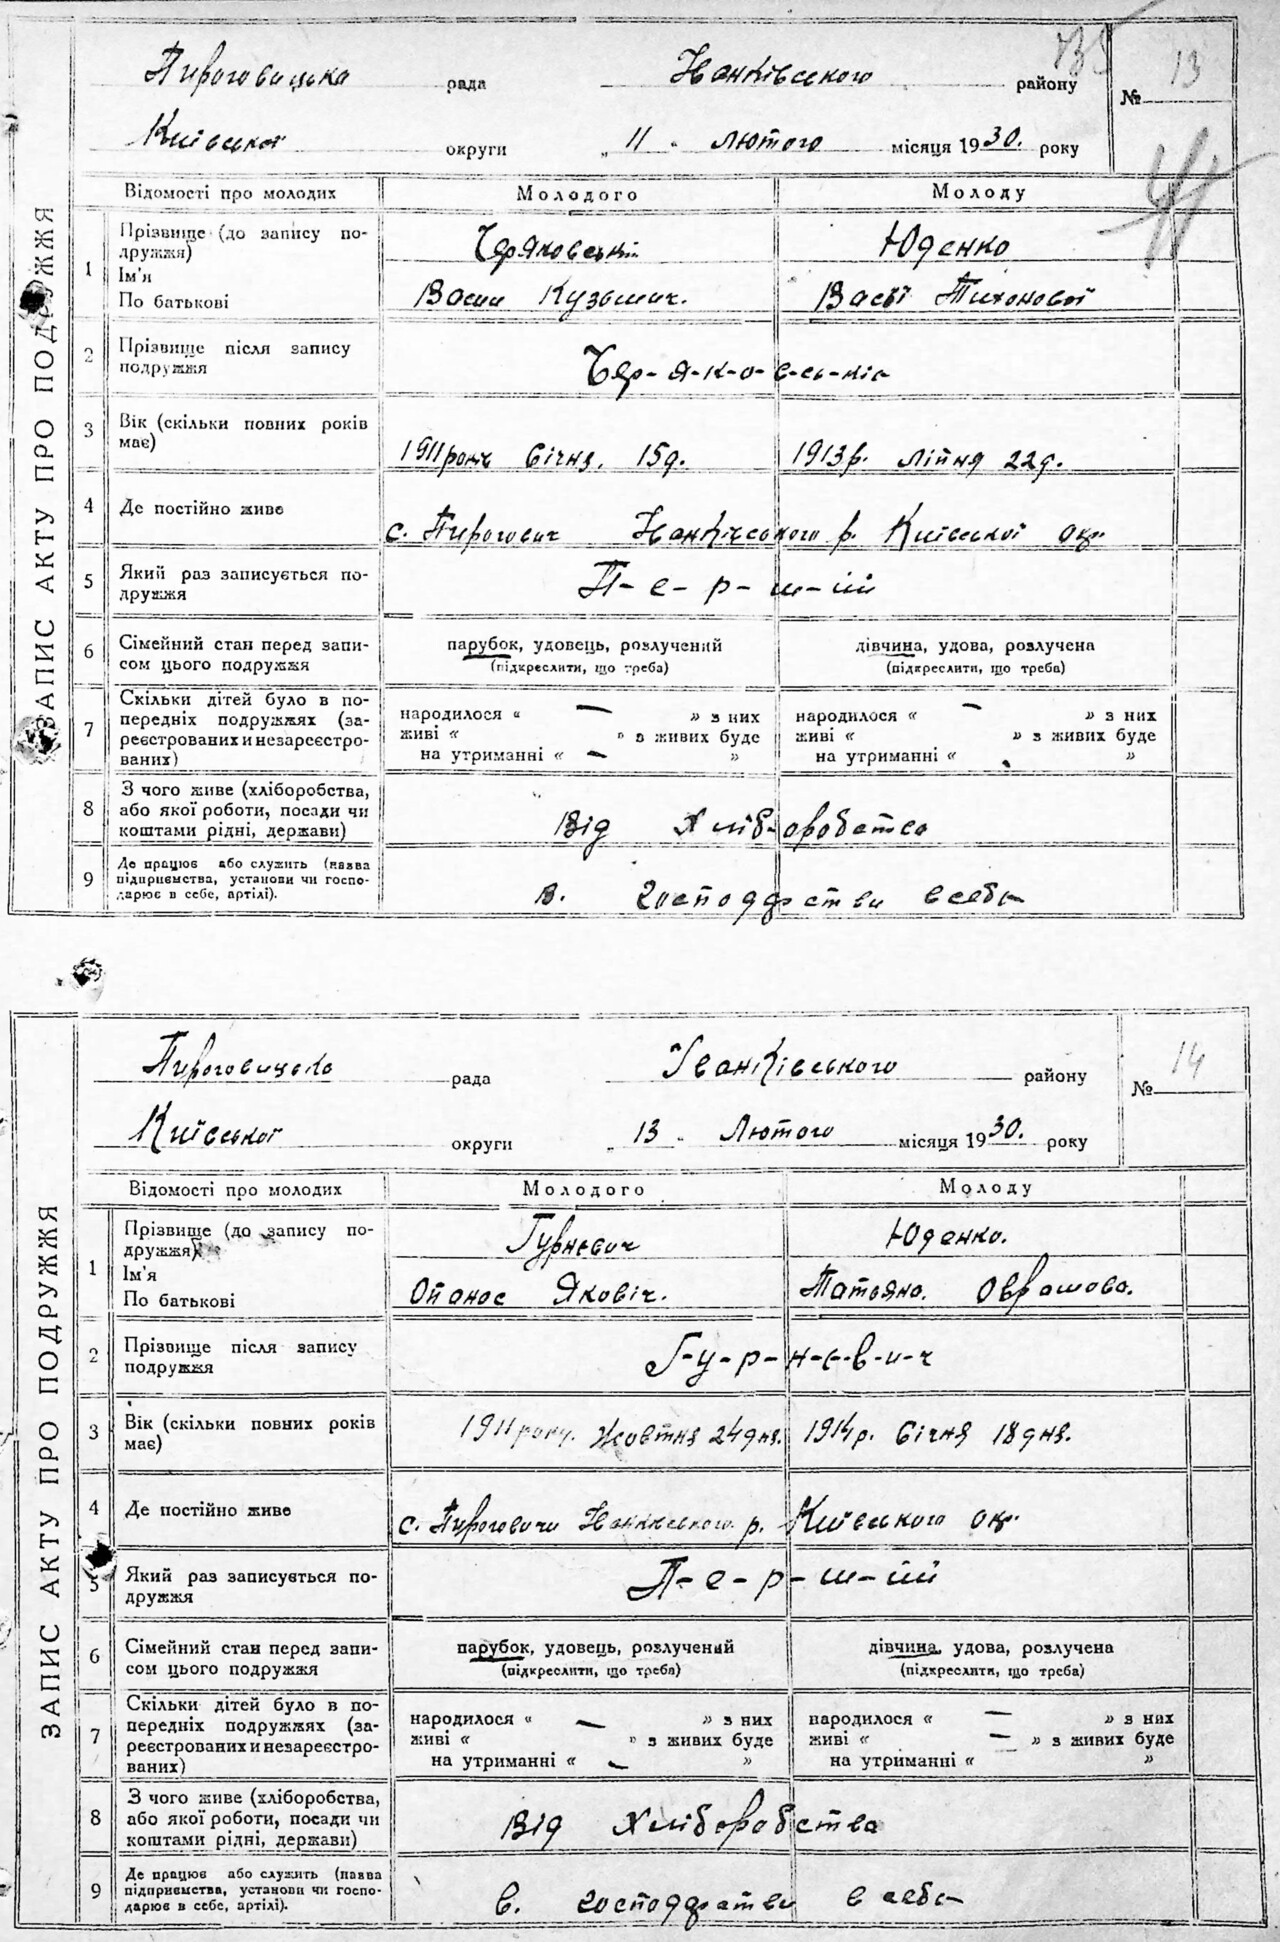 Пироговицька рада Іванківського району № 13
Київської округи „ 11 „ лютого місяця 1930. року
ЗАПИС АКТУ ПРО ПОДРУЖЖЯ
Відомості про молодих Молодого Молоду
1 Прізвище (до запису по-
дружжя) Черяковській Юденко
Ім'я
По батькові Васил Кузьмич. Тихонової
2 Прізвище після запису
подружжя
3 Вік (скільки повних років
має) 1911 року Січня. 15д. 1913р. Ліпня 22д.
4 Де постійно живе с. Пирогович Іванківського р. Київської ок.
5 Який раз записується по-
дружжя П-е-р-ш-ий
6 Сімейний стан перед запи-
сом цього подружжя парубок, удовець, розлучений дівчина, удова, розлучена
(підкреслити, що треба) (підкреслити, що треба)
7 Скільки дітей було в по-
передніх подружжях (за-
реєстрованих и незареєстро-
ваних) народилося « — » з них народилося « — » з них
живі « » з живих буде живі « » з живих буде
на утриманні « — » на утриманні « »
8 З чого живе (хліборобства,
або якої роботи, посади чи
коштами рідні, держави) Від Хліборобства
9 Де працює або служить (назва
підприємства, установи чи госпо-
дарює в себе, артілі). в. господарстви в себе
Пироговицька рада Іванківського району № 14
Київської округи „ 13 „ Лютого місяця 1930. року
ЗАПИС АКТУ ПРО ПОДРУЖЖЯ
Відомості про молодих Молодого Молоду
1 Прізвище (до запису по-
дружжя) Гурневич Юденко.
Ім'я
По батькові Опанос Яковіч. Татьяна. Оврамова.
2 Прізвище після запису
подружжя Г-у-р-н-е-в-и-ч
3 Вік (скільки повних років
має) 1911 року. Жовтня 24 дня. 1914р. Січня 18 дня.
4 Де постійно живе с. Пироговичи Іванківського р. Київського ок.
5 Який раз записується по-
дружжя П-е-р-ш-ий
6 Сімейний стан перед запи-
сом цього подружжя парубок, удовець, розлучений дівчина, удова, розлучена
(підкреслити, що треба) (підкреслити, що треба)
7 Скільки дітей було в по-
передніх подружжях (за-
реєстрованих и незареєстро-
ваних) народилося « — » з них народилося « — » з них
живі « » з живих буде живі « — » з живих буде
на утриманні « — » на утриманні « »
8 З чого живе (хліборобства,
або якої роботи, посади чи
коштами рідні, держави) Від Хліборобства
9 Де працює або служить (назва
підприємства, установи чи госпо-
дарює в себе, артілі). в. господарстви в себе